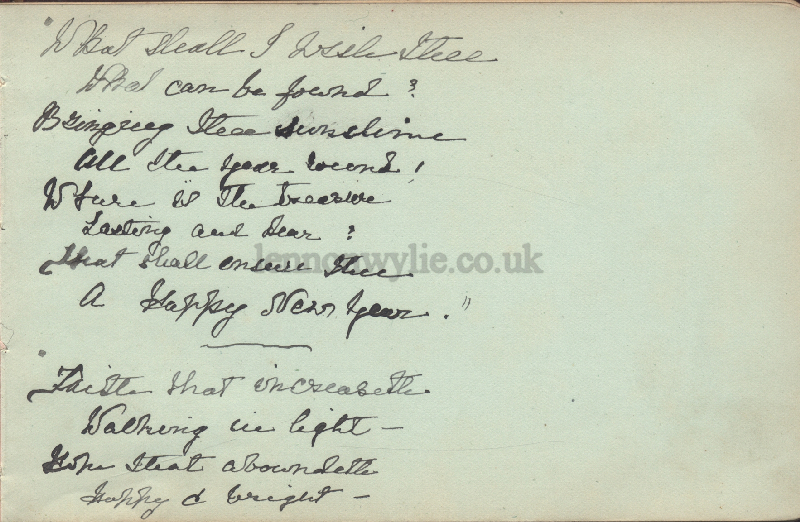 "What shall I wish thee
What can be found?
Bringing thee sunshine
All the year round!
Where is the treasure
Lasting and dear?
That shall ensure thee
A Happy New Year."
"Faith that increaseth
Walking in light –
Hope that aboundeth
Happy & bright –
lennonwylie.co.uk